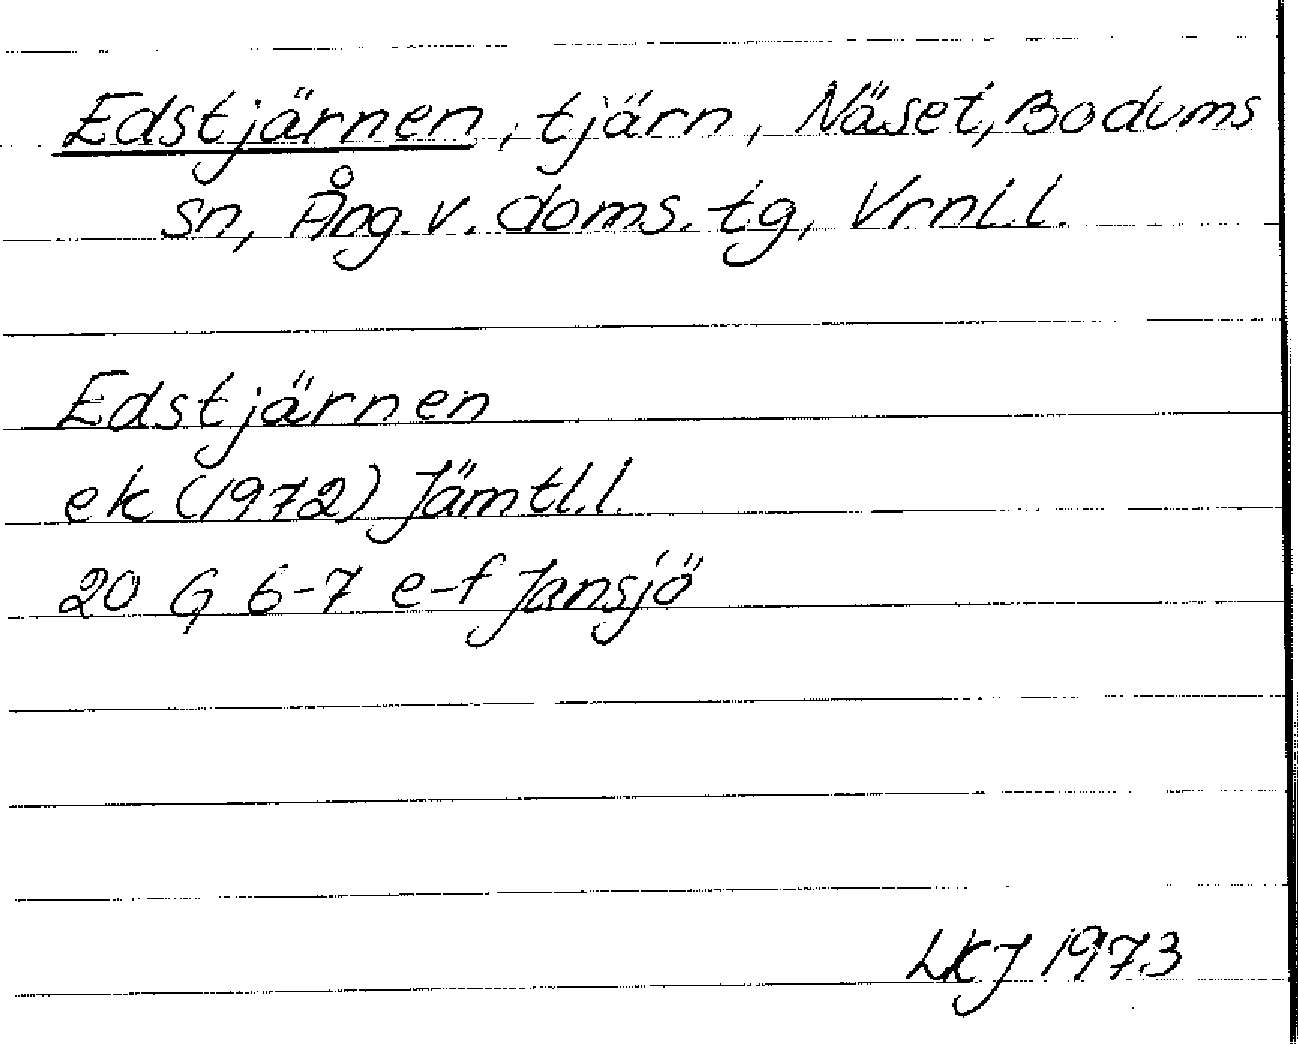 Edstjärnen, tjärn, Näset, Bodums
sn, Ång. v. doms. tg, Vrnl.l.
Edstjärnen
ek (1972) Jämtl.l.
20 G 6-7 e-f Jansjö
LKJ 1973